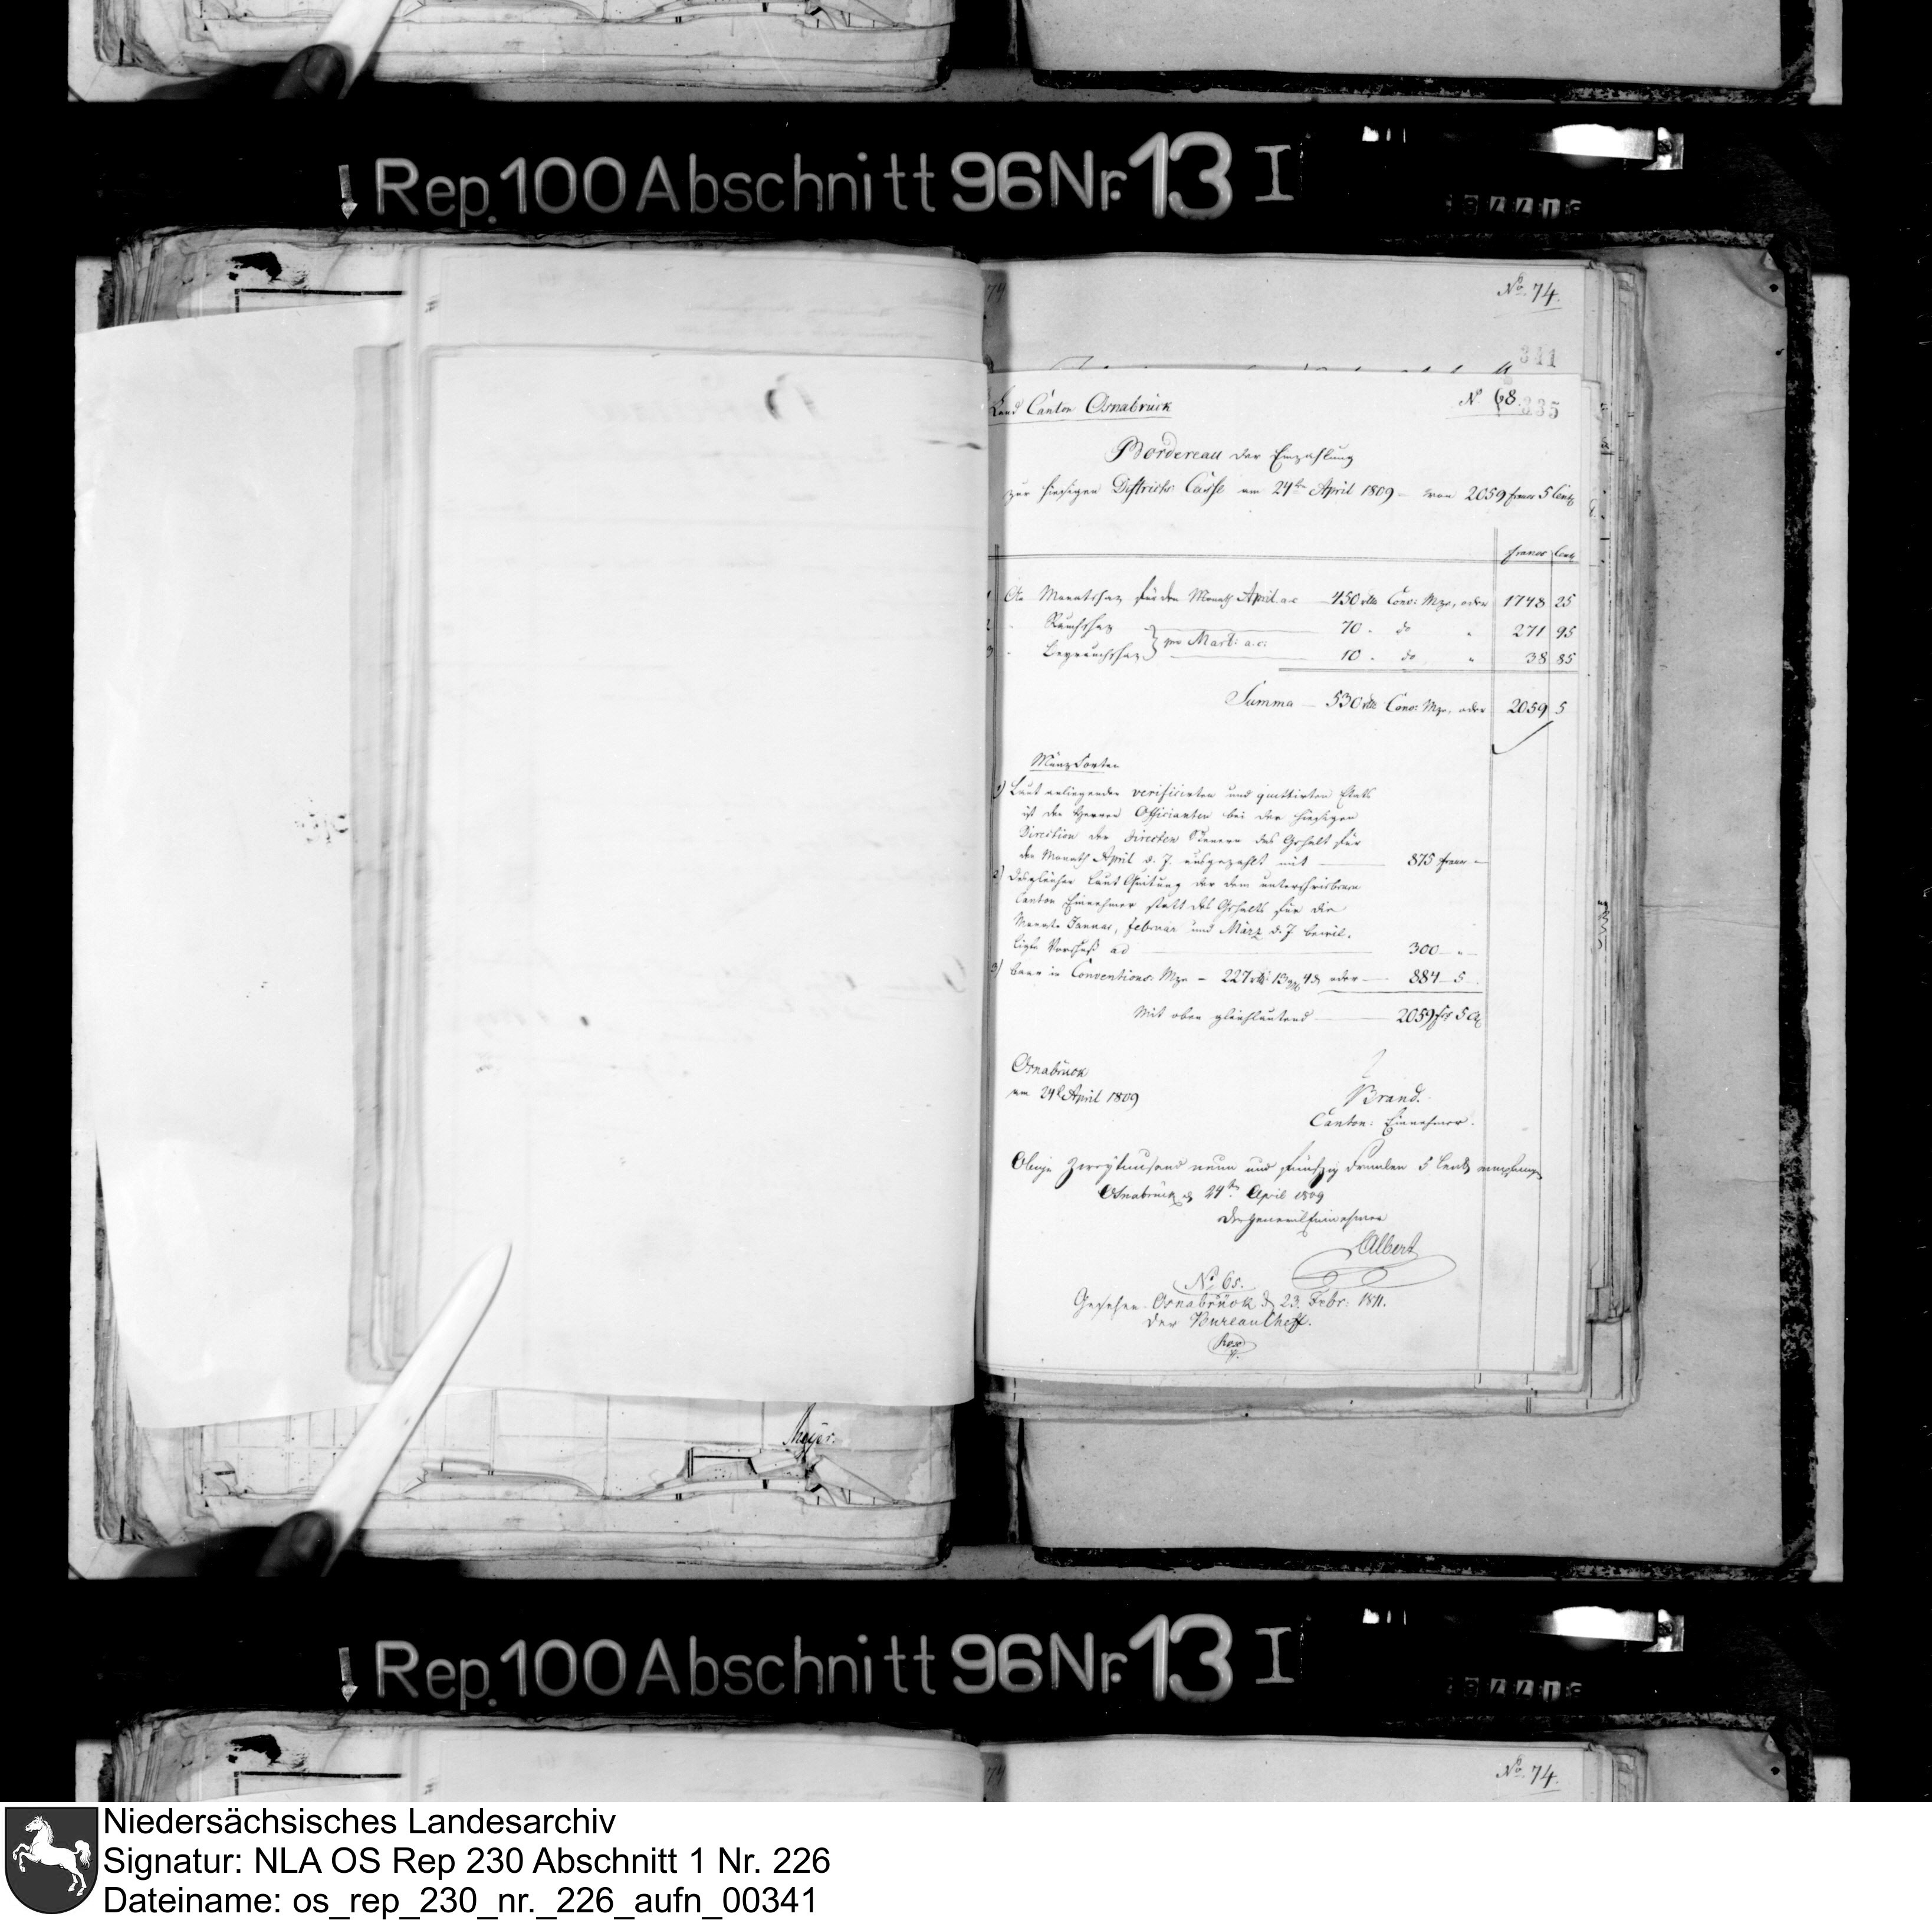 Rep. 100 Abschnitt 96 Nr. 13 I
No. 74.
341
Land Canton Osnabrück
No 68.
335
Bordereau der Einzahlung
zur hiesigen Districts Casse am 24ten April 1809 - von 2059 francs 5 Cents
francs Cents
1 An Monatschaz für den Monath April a. c. 450 rtlr Conv: Mze, oder 1748 25
2 " Rauchschaz 70 " do " 271 95
pro Mart: a. c.
3 " 10 " do " 38 85
Summa 530 rtlr Conv: Mze, oder 2059 5
Münz Sorten
1) Laut anliegenden verificirten und quittirten Etats
ist den Herren Officianten bei der hiesigen
Direction der directen Steuern das Gehalt für
den Monath April d. J. ausgezahlt mit 875 francs -
2) Desgleichen laut Quitung der dem unterschriebenen
Canton Einnehmer statt des Gehalts für die
Monate Januar, Februar und März d. J. bewil-
ligte Vorschuß ad 300 - " -
3) baar in Conventions: Mze - 227 rtlr 13 ggr 4 d oder 884 - 5
Mit oben gleichlautend 2059 frs 5 Ct
Osnabrück
am 24t April 1809
Brand.
Canton: Einnehmer.
Obige Zweytausend neun und funfzig Franken 5 Cents empfangen
Osnabrück d 24ten April 1809
Der General Einnehmer
Albert
No 65.
Gesehen Osnabrück d 23. Febr: 1811.
der Bureau Cheff.
Meyer.
Rep. 100 Abschnitt 96 Nr. 13 I
No. 74.
Niedersächsisches Landesarchiv
Signatur: NLA OS Rep 230 Abschnitt 1 Nr. 226
Dateiname: os_rep_230_nr._226_aufn_00341